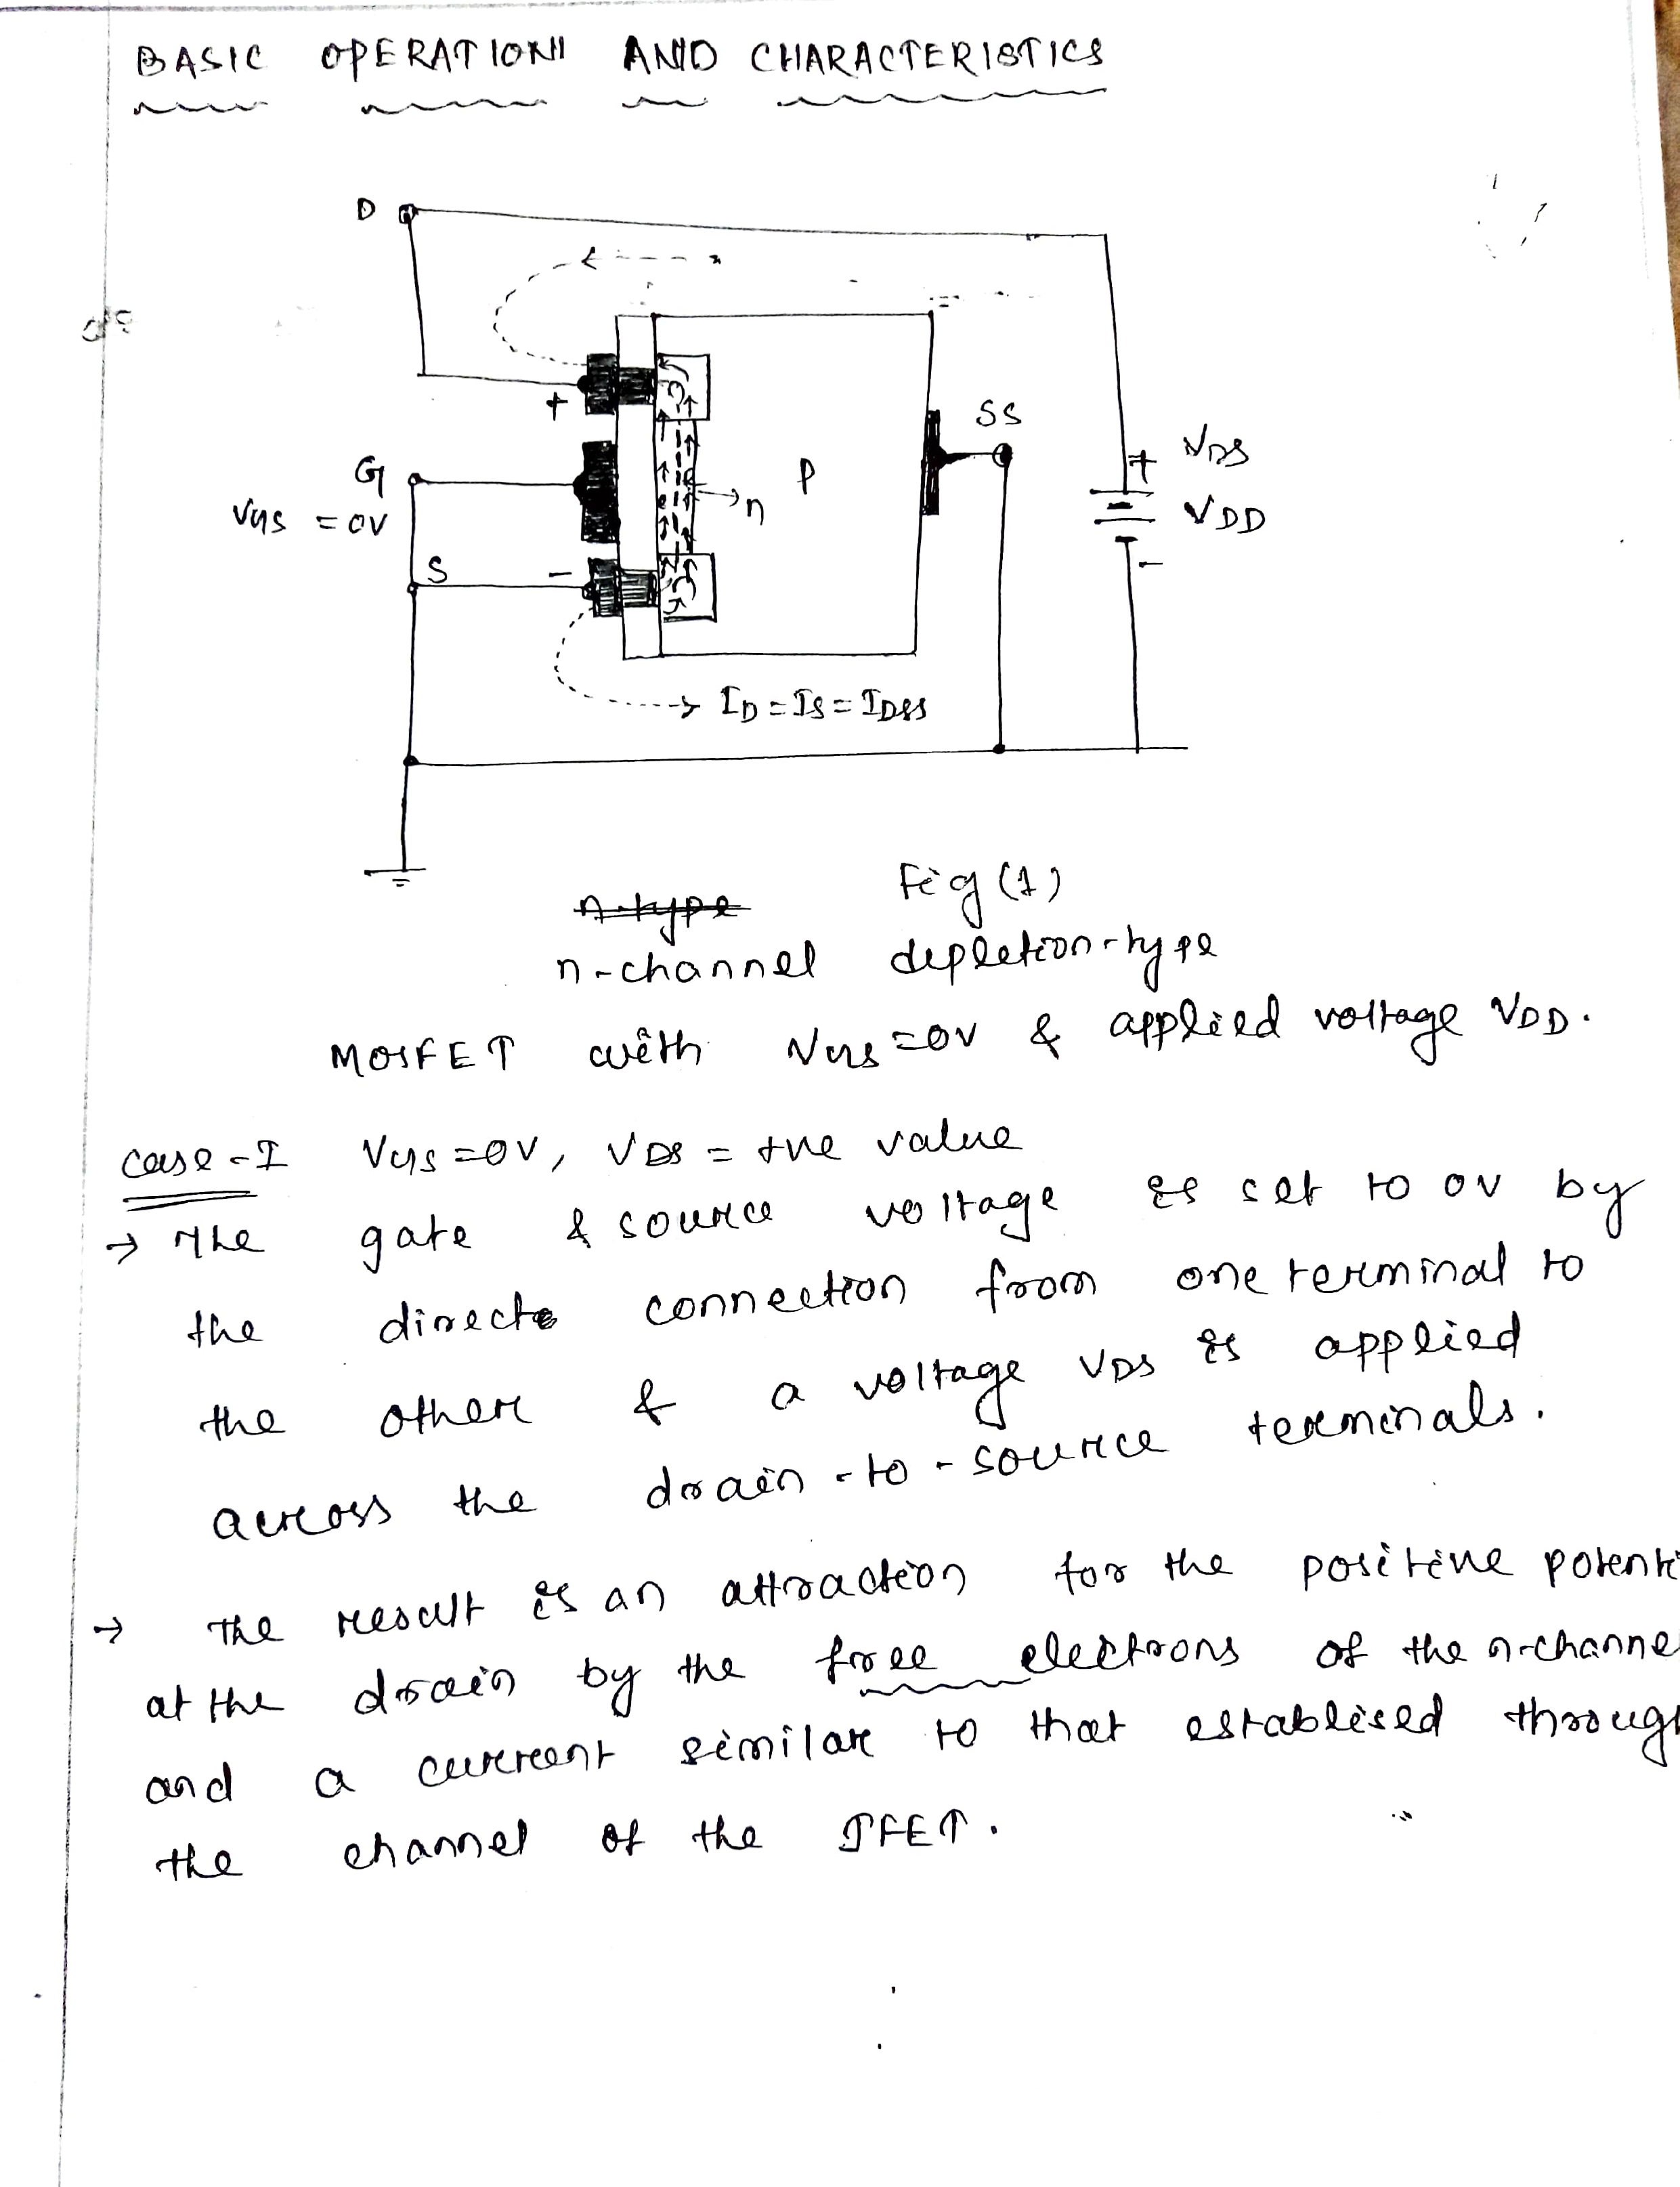 BASIC OPERATION AND CHARACTERISTICS
D
+
SS
+ VDS
G
P
n
VGS = 0V
VDD
S
-
-
ID = IS = IDSS
Fig (1)
n-type
n-channel depletion-type
MOSFET with VGS = 0V & applied voltage VDD.
Case-I VGS = 0V, VDS = +ve value
→ The gate & source voltage is set to 0V by
the direct connection from one terminal to
the other & a voltage VDS is applied
across the drain-to-source terminals.
→ The result is an attraction for the positive potenti
at the drain by the free electrons of the n-channe
and a current similar to that establised throug
the channel of the JFET.